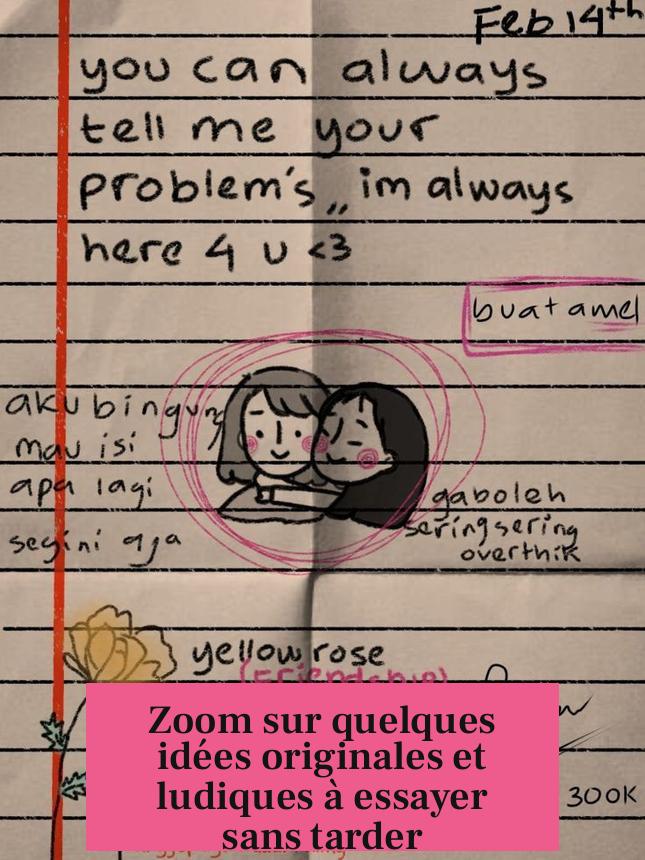 Feb 14th
you can always
tell me your
problem's,, im always
here 4 u <3
buat amel
aku bingung
mau isi
apa lagi
segini aja
gaboleh
sering sering
overthik
yellow rose
(Friendship)
300K
Zoom sur quelques
idées originales et
ludiques à essayer
sans tarder